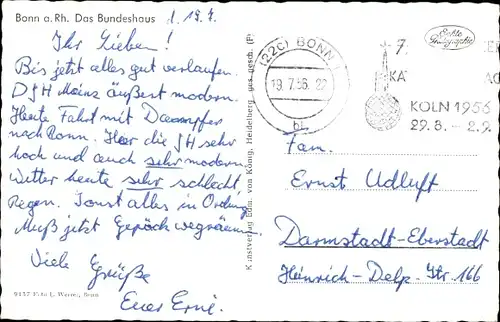 Bonn a. Rh. Das Bundeshaus
d. 19.7.
Ihr Lieben!
Bis jetzt alles gut verlaufen.
DJH Mainz äußerst modern.
Heute Fahrt mit Dampfer
nach Bonn. Hier die JH sehr
hoch und auch sehr modern.
Wetter heute sehr schlecht,
Regen. Sonst alles in Ordnung
Muß jetzt Gepäck wegräumen.
Viele Grüße
Euer Erni.
9137 Foto L. Werner, Bonn
Kunstverlag Edm. von König, Heidelberg
ges. gesch.
Echte Photographie
(22c) BONN
19.7.56. 22
KÖLN 1956
29.8. – 2.9.
Fam.
Ernst Udluft
Darmstadt-Eberstadt
Heinrich-Delp-Str. 166